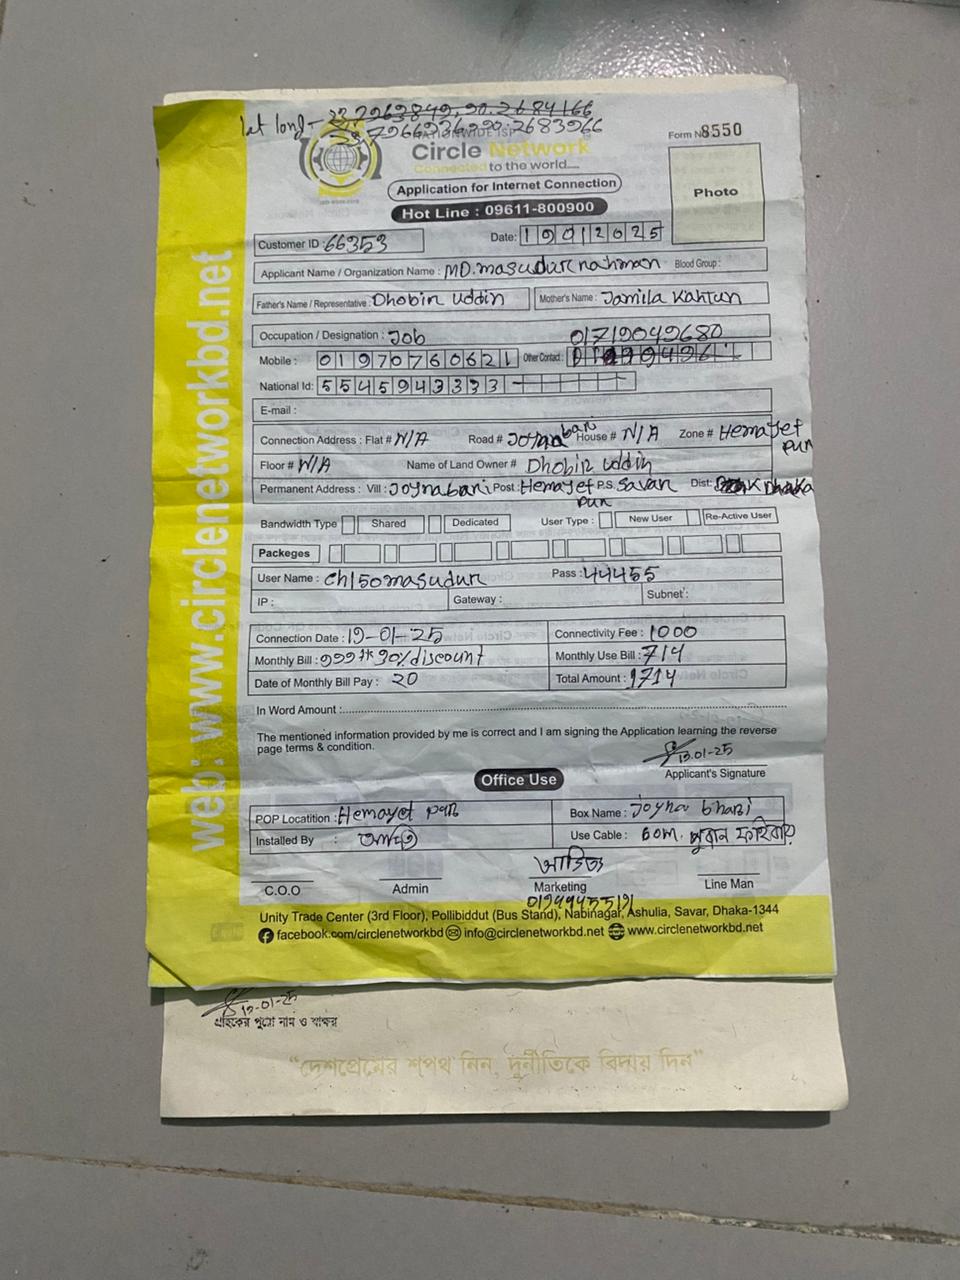 lat long - 23.7963849, 90.2684166
NATIONWIDE ISP
Circle Network
Connected to the world....
Form No 8550
Photo
Application for Internet Connection
Hot Line : 09611-800900
Customer ID : 66353
Date: 19012025
Applicant Name / Organization Name : MD. masudur rahman Blood Group :
Father's Name / Representative : Dhobir uddin Mother's Name : Jamila Kahtun
Occupation / Designation : Job 01719049680
Mobile : 01970760621 Other Contact :
National Id: 5545943333
E-mail :
Connection Address : Flat # N/A Road # Joynabari House # N/A Zone # Hemayetpur
Floor # N/A Name of Land Owner # Dhobir uddin
Permanent Address : Vill : Joynabari Post : Hemayetpur P.S. Savar Dist: Dhaka
Bandwidth Type Shared Dedicated User Type : New User Re-Active User
Packeges
User Name : ch150masudur Pass : 44455
IP : Gateway : Subnet :
Connection Date : 19-01-25 Connectivity Fee : 1000
Monthly Bill : 999tk 30% discount Monthly Use Bill : 714
Date of Monthly Bill Pay : 20 Total Amount : 1714
In Word Amount :
The mentioned information provided by me is correct and I am signing the Application learning the reverse
page terms & condition.
19.01-25
Applicant's Signature
Office Use
POP Locatition : Hemayet pur Box Name : Joyna bhari
Installed By : Use Cable : 60m. পুরান ফাইবার
C.O.O Admin Marketing Line Man
Unity Trade Center (3rd Floor), Pollibiddut (Bus Stand), Nabinagar, Ashulia, Savar, Dhaka-1344
facebook.com/circlenetworkbd info@circlenetworkbd.net www.circlenetworkbd.net
web: www.circlenetworkbd.net
19-01-25
গ্রাহকের পুরো নাম ও স্বাক্ষর
“দেশপ্রেমের শপথ নিন, দুর্নীতিকে বিদায় দিন”